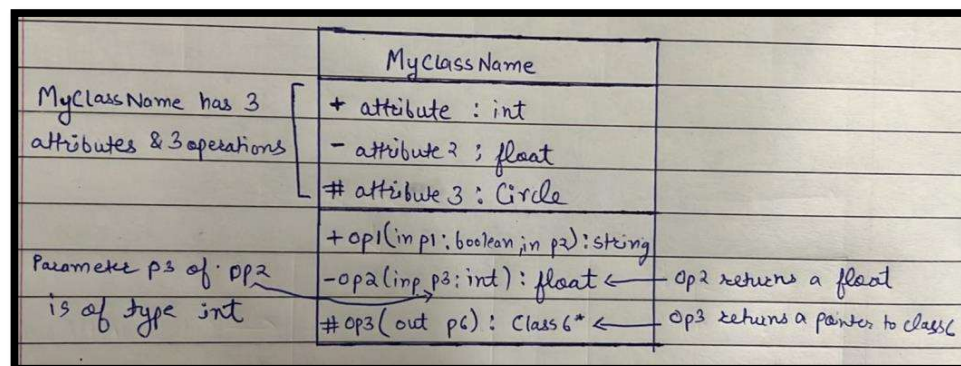 MyClassName
MyClassName has 3
attributes & 3 operations
+ attribute : int
- attribute 2 : float
# attribute 3 : Circle
+ op1(in p1: boolean, in p2) : string
Parameter p3 of op2
is of type int
- op2 (inp p3: int) : float ← op2 returns a float
# op3 ( out p6 ) : Class6* ← op3 returns a pointer to class6